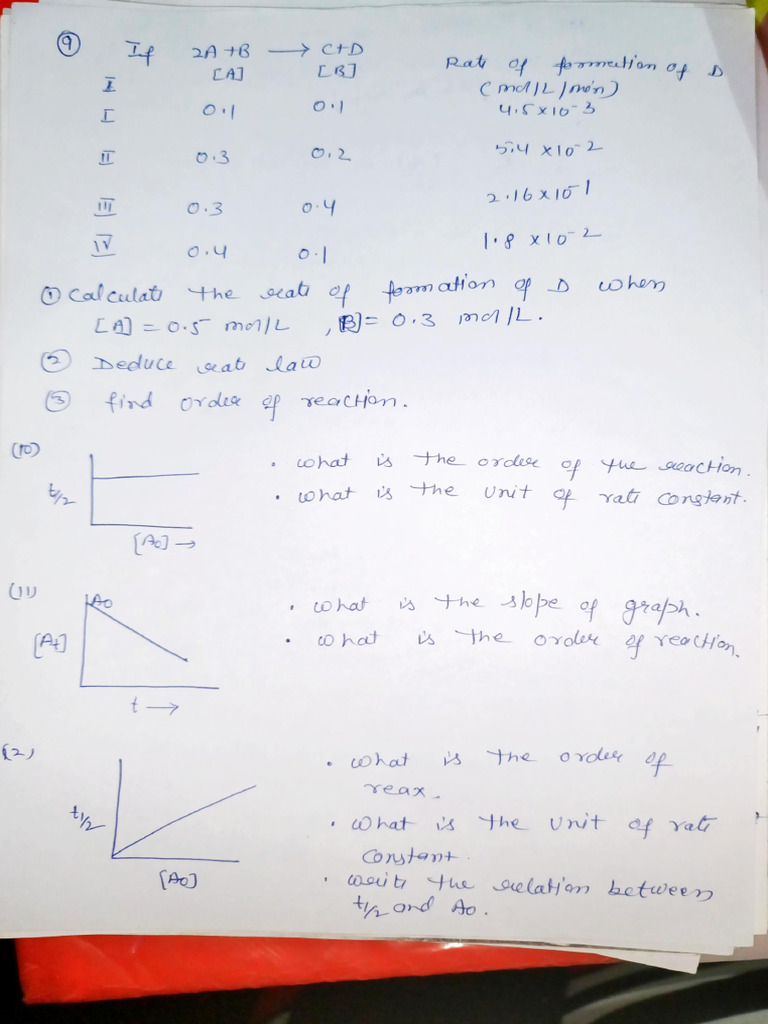 (9) If 2A + B → C+D Rate of formation of D
[A] [B] (mol/L/min)
I
I 0.1 0.1 4.5×10-3
II 0.3 0.2 5.4 ×10-2
III 0.3 0.4 2.16×10-1
IV 0.4 0.1 1.8 ×10-2
(1) Calculate the rate of formation of D when
[A] = 0.5 mol/L , [B]= 0.3 mol/L.
(2) Deduce rate law
(3) find order of reaction.
(10)
• what is the order of the reaction.
t1/2 • what is the unit of rate constant.
[A0] →
(11)
A0 • what is the slope of graph.
[At] • what is the order of reaction.
t →
(2)
• what is the order of
reax.
t1/2 • what is the unit of rate
constant.
[A0] • write the relation between
t1/2 and A0.